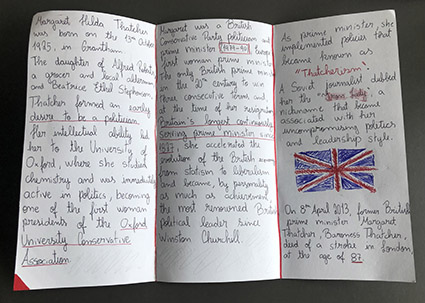 Margaret Hilda Thatcher
was born on the 13th October
1925, in Grantham.
The daughter of Alfred Roberts
a grocer and local alderman
and Beatrice Ethel Stephenson,
Thatcher formed an early
desire to be a politician.
Her intellectual ability led
her to the University of
Oxford, where she studied
chemistry and was immediately
active in politics, becoming
one of the first woman
presidents of the Oxford
University Conservative
Association.
Margaret was a British
Conservative Party politician and
prime minister (1979-90), Europe
first woman prime minister.
The only British prime minist
in the 20th century to win
three consecutive terms and,
at the time of her resignation,
Britain's longest continuously
serving prime minister since
1827, she accelerated the
evolution of the British economy
from statism to liberalism
and became, by personality
as much as achievement,
the most renowned British
political leader since
Winston Churchill.
As prime minister, she
implemented policies that
became known as
"Thatcherism".
A Soviet journalist dubbed
her the "Iron Lady", a
nickname that became
associated with her
uncompromising politics
and leadership style.
On 8th April 2013, former British
prime minister Margaret
Thatcher, Baroness Thatcher,
died of a stroke in London
at the age of 87.